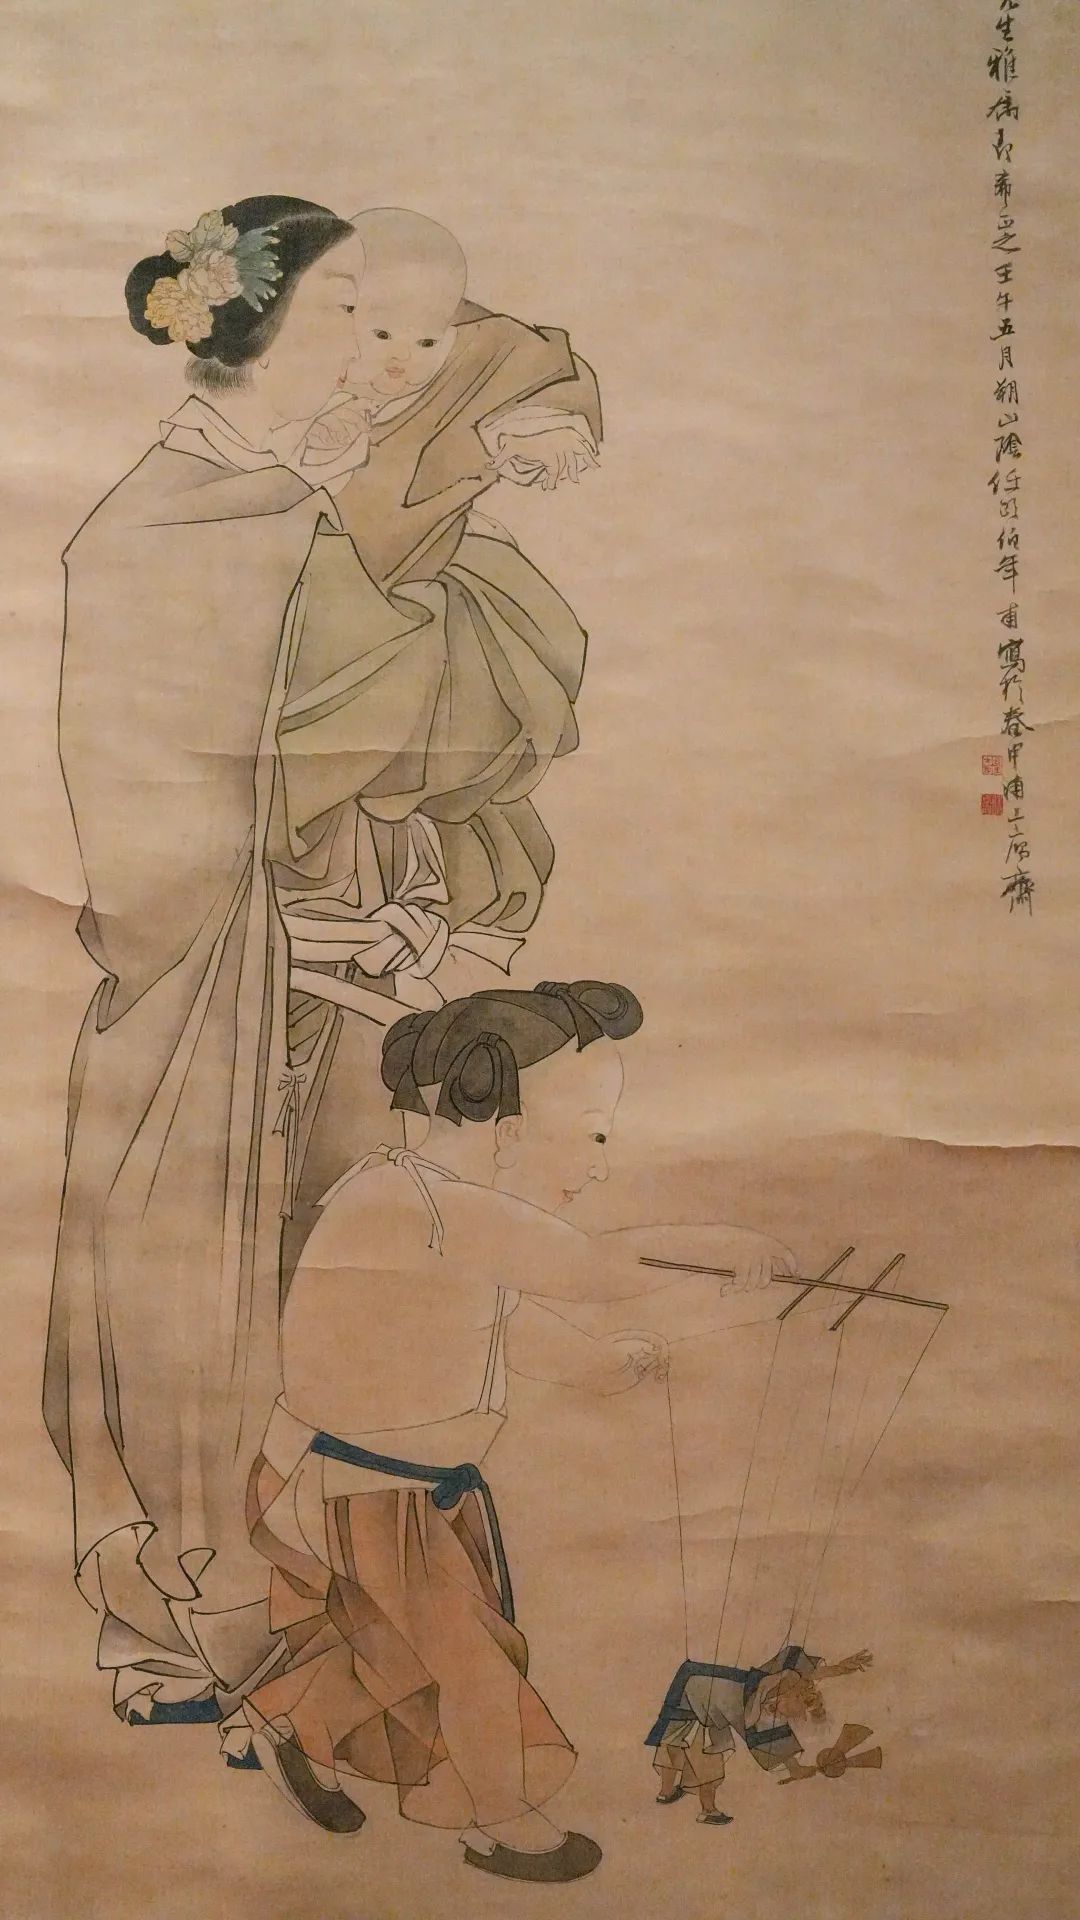 先生雅屬即希正之壬午五月朔山陰任頤伯年甫寫於春申浦上寓齋